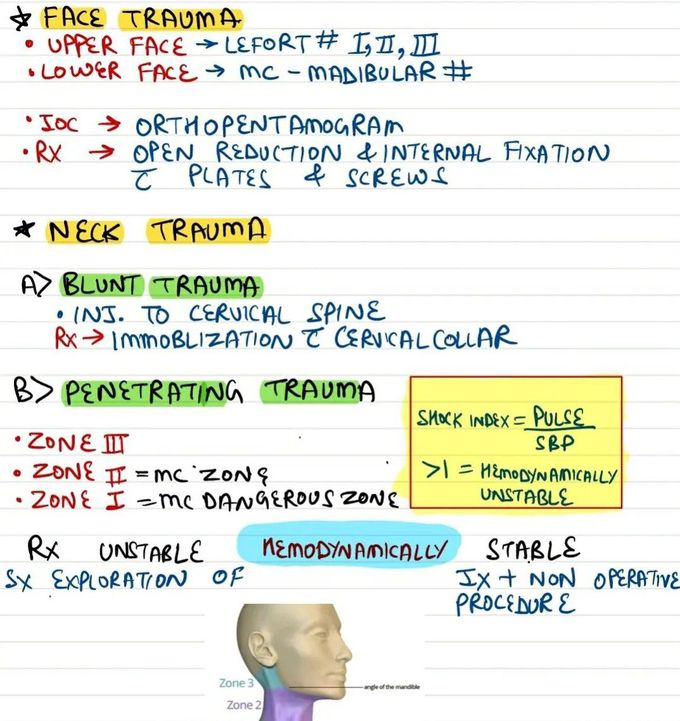 ★ FACE TRAUMA
• UPPER FACE → LEFORT # I, II, III
• LOWER FACE → MC - MADIBULAR #
• IOC → ORTHOPENTAMOGRAM
• RX → OPEN REDUCTION & INTERNAL FIXATION
C̄ PLATES & SCREWS
★ NECK TRAUMA
A> BLUNT TRAUMA
• INJ. TO CERVICAL SPINE
Rx → IMMOBLIZATION C̄ CERVICAL COLLAR
B> PENETRATING TRAUMA
SHOCK INDEX = PULSE
SBP
>1 = HEMODYNAMICALLY
UNSTABLE
• ZONE III
• ZONE II = MC ZONE
• ZONE I = MC DANGEROUS ZONE
Rx UNSTABLE HEMODYNAMICALLY STABLE
SX EXPLORATION OF
IX + NON OPERATIVE
PROCEDURE
Zone 3
angle of the mandible
Zone 2